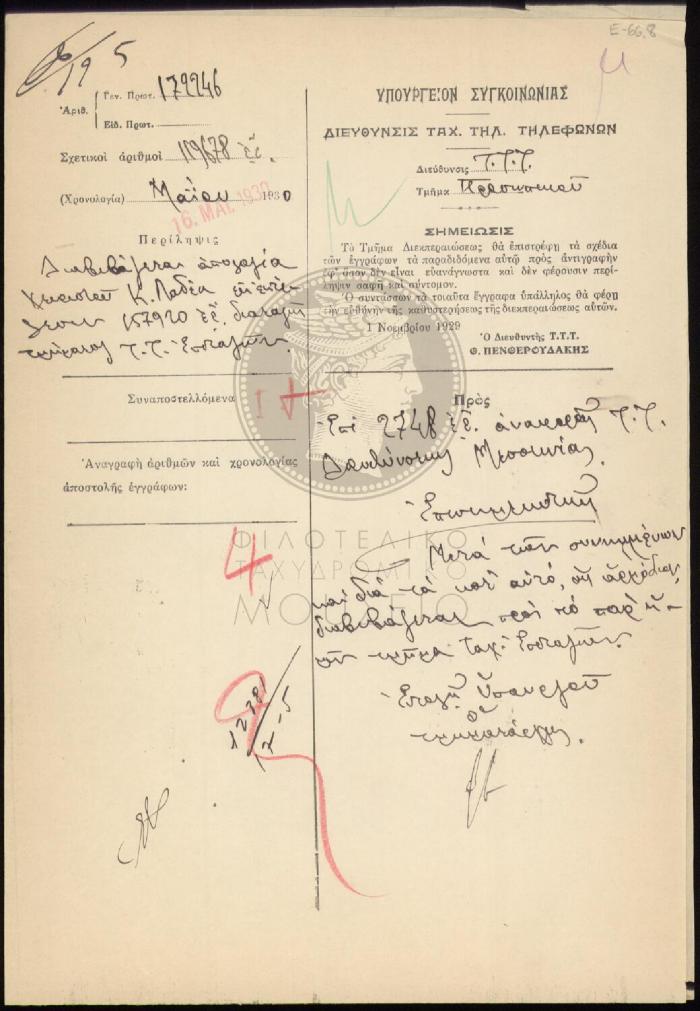 E-66.8
19/5
Ἀριθ. Γεν. Πρωτ. 172246
Εἰδ. Πρωτ.
Σχετικοὶ ἀριθμοὶ 119678 ἐ.ἔ.
(Χρονολογία) Μαΐου 1930
16. ΜΑΪ. 1930
Περίληψις
Διαβιβάζεται ἀπολογία
Κ. Λαδέα
157920 ἐ.ἔ. διαταγῆς
τμήματος Τ.Τ. Ἐπιταγῶν.
Συναποστελλόμενα
Ἀναγραφὴ ἀριθμῶν καὶ χρονολογίας
ἀποστολῆς ἐγγράφων:
4
ΥΠΟΥΡΓΕΙΟΝ ΣΥΓΚΟΙΝΩΝΙΑΣ
ΔΙΕΥΘΥΝΣΙΣ ΤΑΧ. ΤΗΛ. ΤΗΛΕΦΩΝΩΝ
Διεύθυνσις Τ.Τ.Τ.
Τμῆμα Προσωπικοῦ
ΣΗΜΕΙΩΣΙΣ
Τὸ Τμῆμα Διεκπεραιώσεως θὰ ἐπιστρέφῃ τὰ σχέδια
τῶν ἐγγράφων τὰ παραδιδόμενα αὐτῷ πρὸς ἀντιγραφὴν
ἐφ' ὅσον δὲν εἶναι εὐανάγνωστα καὶ δὲν φέρουσιν περί-
ληψιν σαφῆ καὶ σύντομον.
Ὁ συντάσσων τὰ τοιαῦτα ἔγγραφα ὑπάλληλος θὰ φέρῃ
τὴν εὐθύνην τῆς καθυστερήσεως τῆς διεκπεραιώσεως αὐτῶν.
1 Νοεμβρίου 1929
Ὁ Διευθυντὴς Τ.Τ.Τ.
Θ. ΠΕΝΘΕΡΟΥΔΑΚΗΣ
Πρὸς
Ἐπὶ 2748 ἐ.ἔ. ἀναφορᾶς Τ.Τ.
Μεσσηνίας.
Μετὰ τῶν συνημμένων
καὶ διὰ τὰ κατ' αὐτό,
διαβιβάζεται πρὸς τὸ παρ' ἡ-
μῖν τμῆμα Ταχ. Ἐπιταγῶν.
Ἐντολῇ Ὑπουργοῦ
Ὁ
τμηματάρχης
ΦΙΛΟΤΕΛΙΚΟ
ΤΑΧΥΔΡΟΜΙΚΟ
ΜΟΥΣΕΙΟ